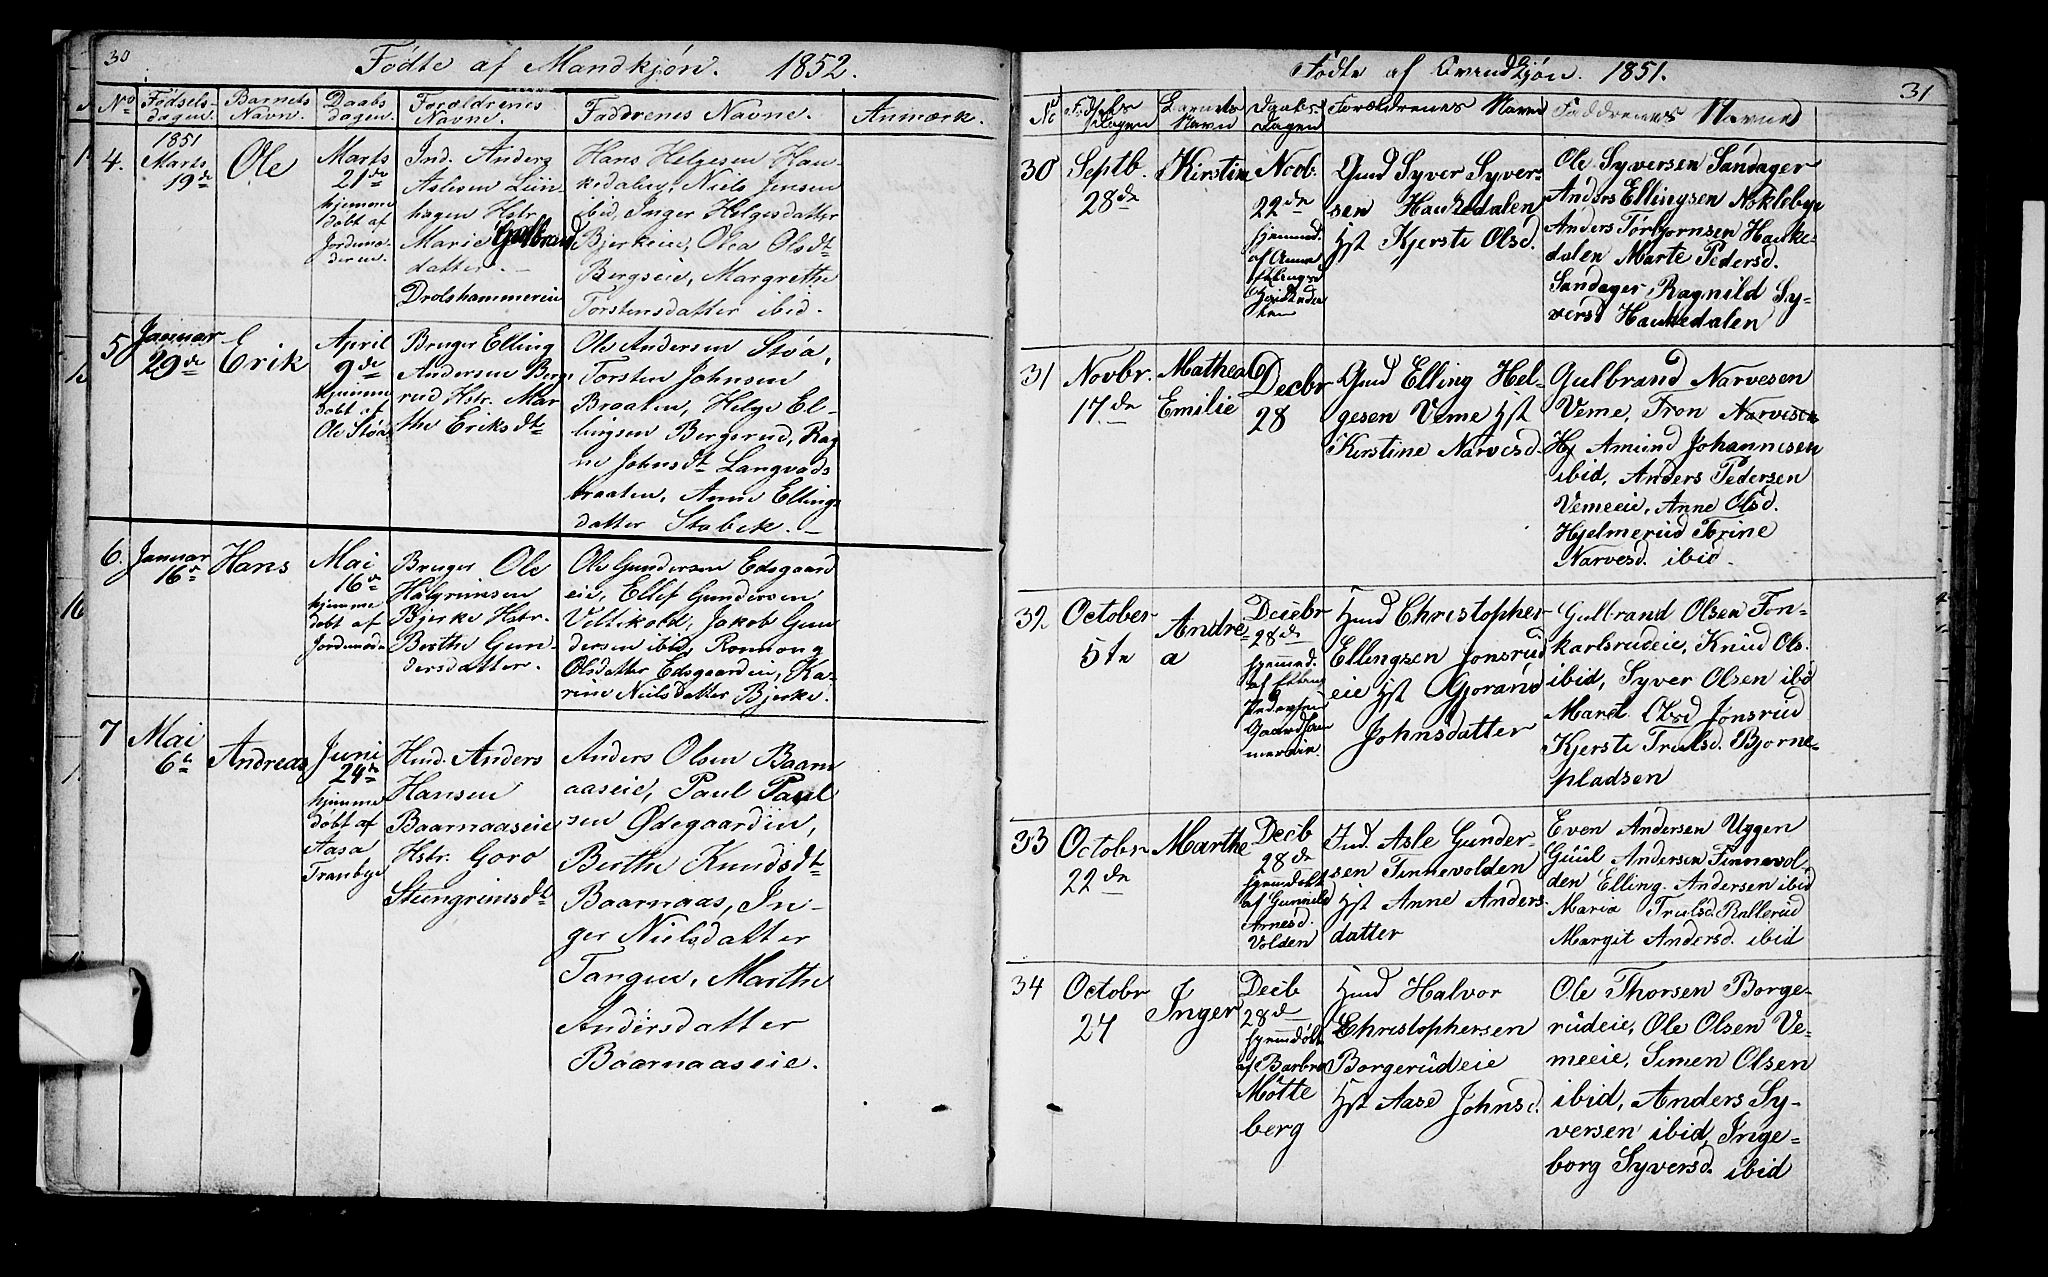 30
Födte af Mandkjøn. 1852.
No
Fødsels-
dagen.
Barnets
Navn.
Daabs
dagen.
Forældrenes
Navne.
Faddrenes Navne.
Anmærk.
4.
1851
Marts
19de
Ole
Marts
21de
hjemme
døbt af
Jordmo-
deren.
Ind. Anders
Aslesen
hagen Hstr.
Marie Gulbrands
datter. -
Drolshammereie
Hans Helgesen Hau-
kedalen, Niels Jensen
ibid, Inger Helgesdatter
Bjerkeie, Olea Olsdt
Bergseie, Margrethe
Torstensdatter ibid.
5
Januar
29de
Erik
April
9de
hjemme
døbt af
Ole Støa
Bruger Elling
Andersen Berg
rud Hstr. Mar
the Eriksdt
Ole Andersen Støa,
Torsten Johnsen
Braaten, Helge El-
lingsen Bergerud, Rag
ne Johnsdt Langvads
braaten, Anne Ellings
datter Stabek. -
6.
Januar
16de
Hans
Mai
16de
hjemme
døbt af
Jordmoder
Bruger Ole
Halgrimsen
Bjerke Hstr.
Berthe Gun-
dersdatter.
Ole Gundersen Edsgaard
eie, Ellef Gundersen
Veltikold, Jakob Gun
dersen ibid, Ronnoug
Olsdatter Edsgaardeie, Ka-
rine Nielsdatter Bjerke.
7
Mai
6te
Andreas
Juni
24de
hjemme
døbt af
Aasa
Tranbye
Hmd. Anders
Hansen
Baarnaaseie
Hstr. Goro
Steengrimsdt
Anders Olsen Baarn
aaseie, Paul Paul
sen Ødegaarden,
Berthe Knudsdt
Baarnaas, In-
ger Nielsdatter
Tangen, Marthe
Andersdatter
Baarnaaseie.
31
Födte af Qvindkjön. 1851.
No
Fødsels
dagen
Barnets
Navn
Daabs-
dagen
Foreldrenes Navne
Faddrenes Navne
30
Septb.
28de
Kirstine
Novb.
22de
hjemmd.
af Anne
Gmd Syver Syver-
sen Haukedalen
Hst Kjersti Olsd.
Ole Syversen Sandager
Anders Ellingsen Nøklebye
Anders Törbjornsen Hauke-
dalen Marte Pedersd.
Sandager, Ragnild Sy-
versd Haukedalen
31
Novbr.
17de
Mathea
Emilie
Decbr
28
Gmd Elling Hel-
gesen Veme Hst
Kirstine Narvesd.
Gulbrand Narvesen
Veme, Tron Narvesen
Hj Amund Johannesen
ibid, Anders Pedersen
Vemeeie, Anne Olsd.
Hjelmerud Torine
Narvesd. ibid.
32
October
5te
Andre
a
Decebr
28de
hjemmd.
af Elling
Pedersen
Gaardham
mereie.
Hmd Christopher
Ellingsen Jonsrud
eie Hst Gjorand
Johnsdatter
Gulbrand Olsen Fon-
karlsrudeie, Knud Ols.
ibid, Syver Olsen ibd
Maret Olsd Jonsrud
Kjersti Trulsd. Bjorne-
pladsen
33
October
22de
Marthe
Decb
28de
hjemdøbt
af Gunnild
Arnesd.
Volden
Ind. Asle Gunder-
sen Finnevolden
Hst Anne Anders
datter
Even Andersen Uggen
Guul Andersen Finnevol-
den Elling. Andersen ibid
Maria Trulsd. Rallerud
Margit Andersd. ibid
34
Octobr
27
Inger
Decb
28de
hjemdøbt
af Barbro
Motte
berg
Hmd Halvor
Christophersen
Borgerudeie
Hst Aase Johnsd.
Ole Thorsen Borge-
rudeie, Ole Olsen Ve-
meeie, Simen Olsen
ibid, Anders Sy-
versen ibid, Inge-
borg Syversd. ibid